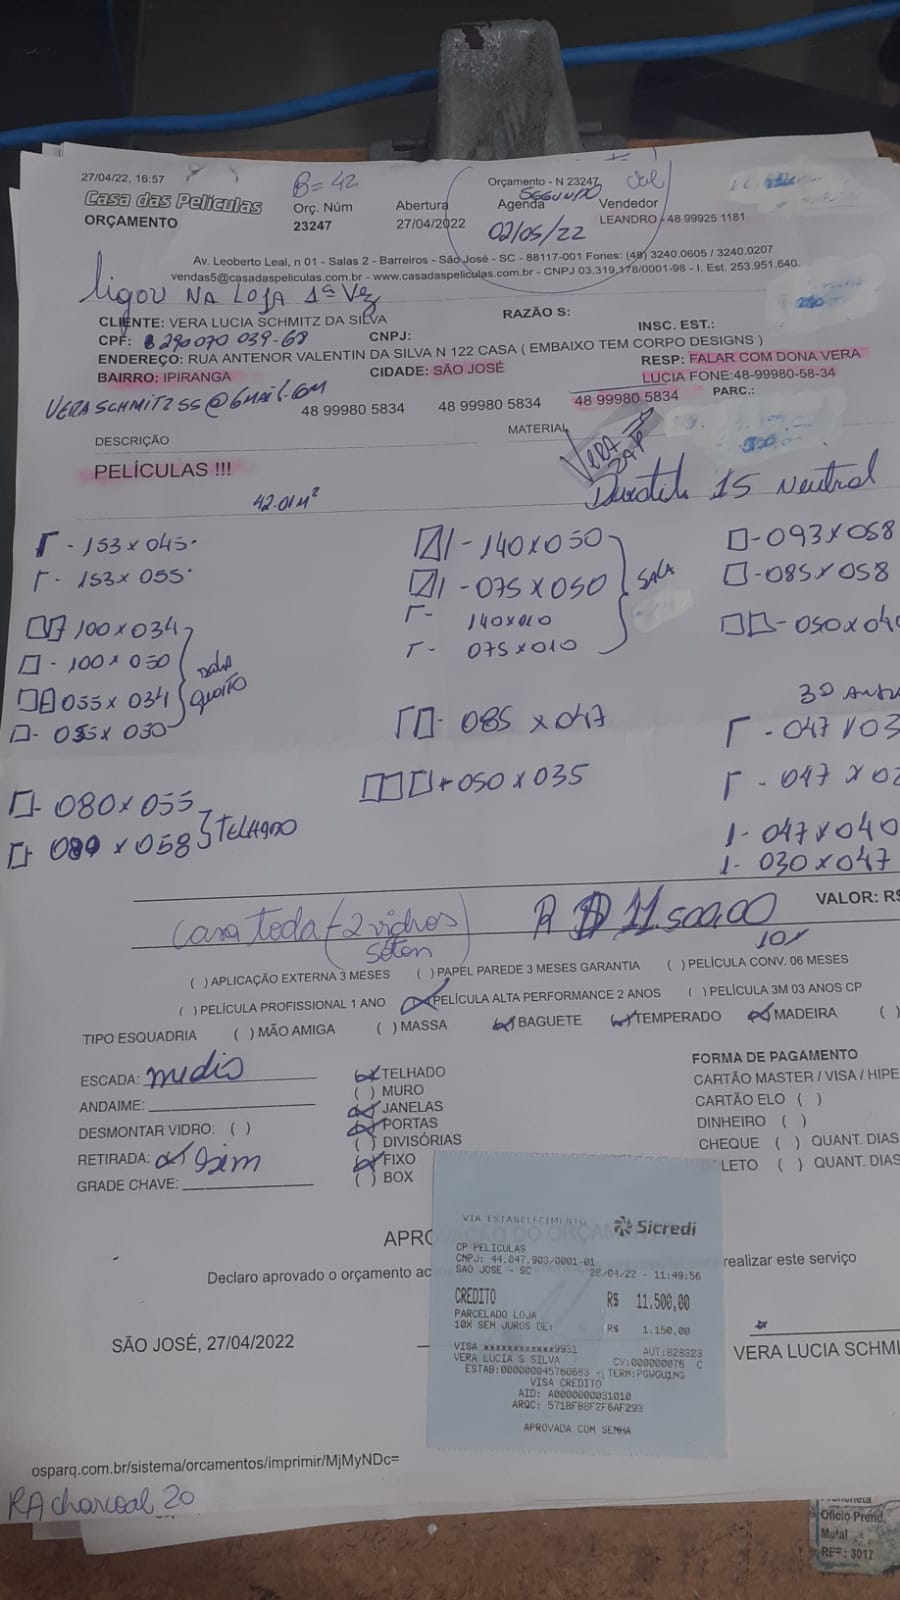 27/04/22, 16:57
B = 42
Orçamento - N 23247
Casa das Películas
ORÇAMENTO
Orç. Núm
23247
Abertura
27/04/2022
Agenda
SEGUNDO
02/05/22
Vendedor
LEANDRO - 48 99925 1181
Av. Leoberto Leal, n 01 - Salas 2 - Barreiros - São José - SC - 88117-001 Fones: (48) 3240.0605 / 3240.0207
vendas5@casadaspeliculas.com.br - www.casadaspeliculas.com.br - CNPJ 03.319.178/0001-98 - I. Est. 253.951.640.
ligou NA LOJA 1ª Vez
CLIENTE: VERA LUCIA SCHMITZ DA SILVA
RAZÃO S:
CPF: 290070039-68
CNPJ:
INSC. EST.:
ENDEREÇO: RUA ANTENOR VALENTIN DA SILVA N 122 CASA ( EMBAIXO TEM CORPO DESIGNS )
BAIRRO: IPIRANGA
CIDADE: SÃO JOSÉ
RESP: FALAR COM DONA VERA
LUCIA FONE:48-99980-58-34
VERASCHMITZSS@GMAIL.COM
48 99980 5834
48 99980 5834
48 99980 5834
PARC.:
DESCRIÇÃO
MATERIAL
VERA
ZAP
PELÍCULAS !!!
42.01 M²
15 Neutral
- 153 x 045
- 153 x 055
100 x 034
- 100 x 050
055 x 034
- 055 x 050
QUARTO
- 080 x 055
x 058
TELHADO
- 140 x 050
- 075 x 050
- 140 x 010
- 075 x 010
SALA
- 085 x 047
050 x 035
- 093 x 058
- 085 x 058
- 050 x 040
- 047 x 03
- 047 x 02
1- 047 x 040
1- 030 x 047
Casa toda (- 2 vidros
R$ 11.500,00
10x
VALOR: R$
( ) APLICAÇÃO EXTERNA 3 MESES ( ) PAPEL PAREDE 3 MESES GARANTIA ( ) PELÍCULA CONV. 06 MESES
( ) PELÍCULA PROFISSIONAL 1 ANO (x) PELÍCULA ALTA PERFORMANCE 2 ANOS ( ) PELÍCULA 3M 03 ANOS CP
TIPO ESQUADRIA ( ) MÃO AMIGA ( ) MASSA (x) BAGUETE (x) TEMPERADO (x) MADEIRA ( )
ESCADA: medio
ANDAIME:
DESMONTAR VIDRO: ( )
RETIRADA: (x) sim
GRADE CHAVE:
(x) TELHADO
( ) MURO
(x) JANELAS
(x) PORTAS
( ) DIVISÓRIAS
(x) FIXO
( ) BOX
FORMA DE PAGAMENTO
CARTÃO MASTER / VISA / HIPE
CARTÃO ELO ( )
DINHEIRO ( )
CHEQUE ( ) QUANT. DIAS
LETO ( ) QUANT. DIAS
APRO
Declaro aprovado o orçamento ac
realizar este serviço
SÃO JOSÉ, 27/04/2022
VERA LUCIA SCHMI
VIA ESTABELECIMENTO
Sicredi
CP PELICULAS
CNPJ: 44.047.903/0001-01
SAO JOSE - SC 28/04/22 - 11:49:56
CREDITO R$ 11.500,00
PARCELADO LOJA
10X SEM JUROS DE: R$ 1.150,00
VISA xxxxxxxxxxxx9931 AUT:828323
VERA LUCIA S SILVA CV:000000076 C
ESTAB:000000045760683 TERM:PGWGU1NG
VISA CREDITO
AID: A0000000031010
ARQC: 571BFB8F2F6AF293
APROVADA COM SENHA
osparq.com.br/sistema/orcamentos/imprimir/MjMyNDc=
RA charcoal 20
Prancheta
Oficio Prend.
Metal
REF.: 3017